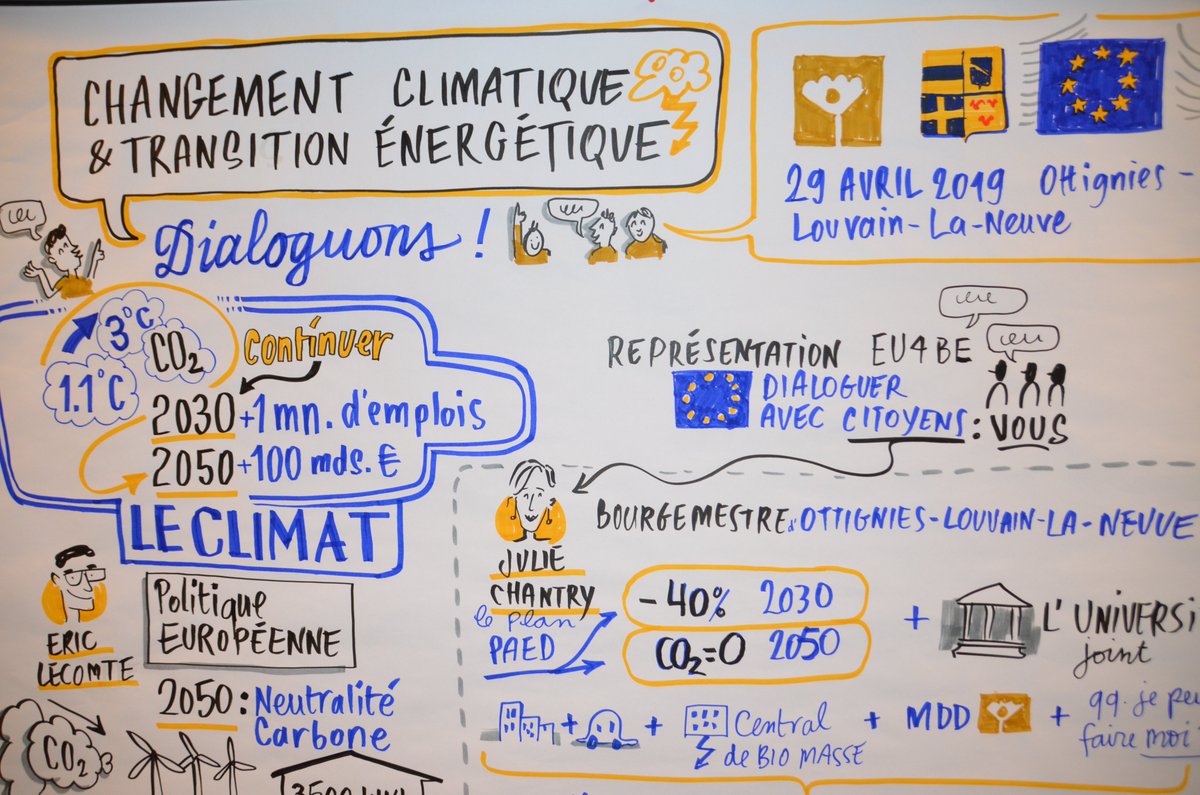 CHANGEMENT CLIMATIQUE
& TRANSITION ÉNERGÉTIQUE
Dialoguons !
29 AVRIL 2019 Ottignies-
Louvain-La-Neuve
3°C
CO2
1.1°C
continuer
2030 +1 mn. d'emplois
2050 +100 mds. €
LE CLIMAT
REPRÉSENTATION EU4BE
DIALOGUER
AVEC CITOYENS : VOUS
BOURGEMESTRE d'OTTIGNIES-LOUVAIN-LA-NEUVE
JULIE
CHANTRY
le plan
PAED
-40% 2030
CO2=0 2050
+ L'UNIVERSI
joint
+ + Central
de BIO MASSE
+ MDD +
qq. je peu
faire moi
ERIC
LECOMTE
Politique
EUROPÉENNE
2050 : Neutralité
Carbone
CO2